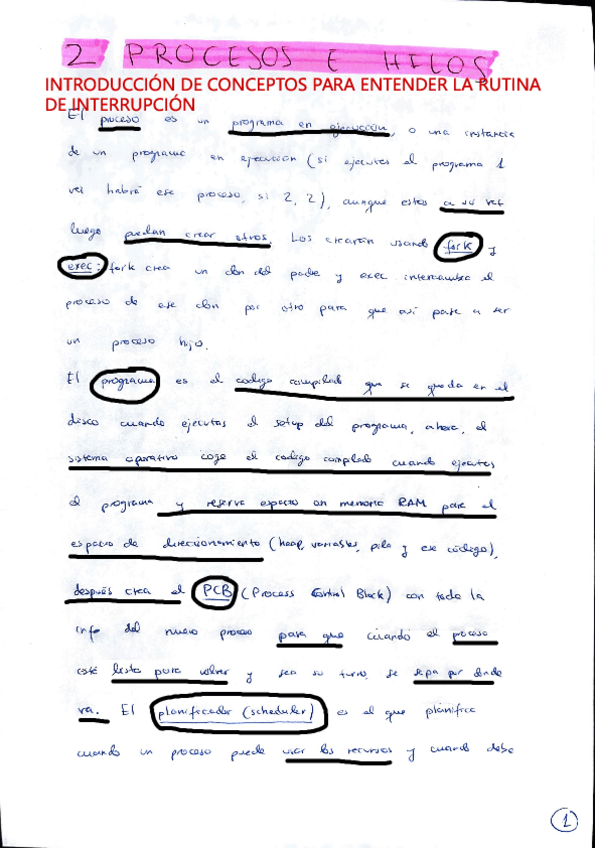 2 PROCESOS E HILOS
INTRODUCCIÓN DE CONCEPTOS PARA ENTENDER LA RUTINA
DE INTERRUPCIÓN
El proceso es un programa en ejecución, o una instancia
de un programa en ejecución (si ejecutas el programa 1
vez habrá ese proceso, si 2, 2), aunque estos a su vez
luego puedan crear otros. Los crearán usando fork y
exec: fork crea un clon del padre y exec intercambia el
proceso de ese clon por otro para que así pase a ser
un proceso hijo.
El programa es el codigo compilado que se queda en el
disco cuando ejecutas el setup del programa, ahora, el
sistema operativo coge el codigo compilado cuando ejecutas
el programa y reserva espacio en memoria RAM para el
espacio de direccionamiento (heap, variables, pila y ese código),
después crea el PCB (Process Control Block) con toda la
info del nuevo proceso para que cuando el proceso
esté listo para volver y sea su turno, se sepa por donde
va. El planificador (scheduler) es el que planifica
cuando un proceso puede usar los recursos y cuando debe
1